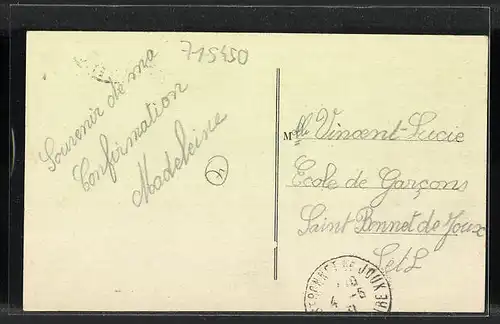 715450
Souvenir de ma
Confirmation
Madeleine
Mlle Vincent-Lucie
Ecole de Garçons
Saint Bonnet de Joux
S et L
BONNET DE JOUX